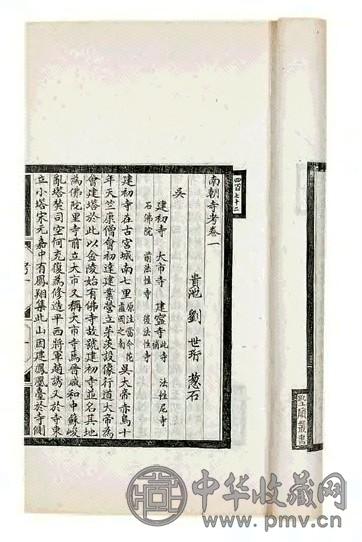 南朝寺考卷一
貴池 劉世珩 蔥石
吳
建初寺 大市寺 建寧寺 法性尼寺
石佛院 前法性寺 後法性寺
建初寺在古宮城南七里 吳大帝赤烏十
年天竺康僧會初達建業營立茅茨設像行道大帝為
會建塔於此以金陵始有佛寺故號建初寺並名其地
為佛陀里寺前立大市又稱大市寺焉晉咸和中蘇峻
亂塔焚司空何充復為修造平西將軍趙誘又於寺東
立小塔宋元嘉中有鳳翔集此山因建鳳凰臺於寺側
四百七十二
叢書
中华收藏网
www.pmv.cn